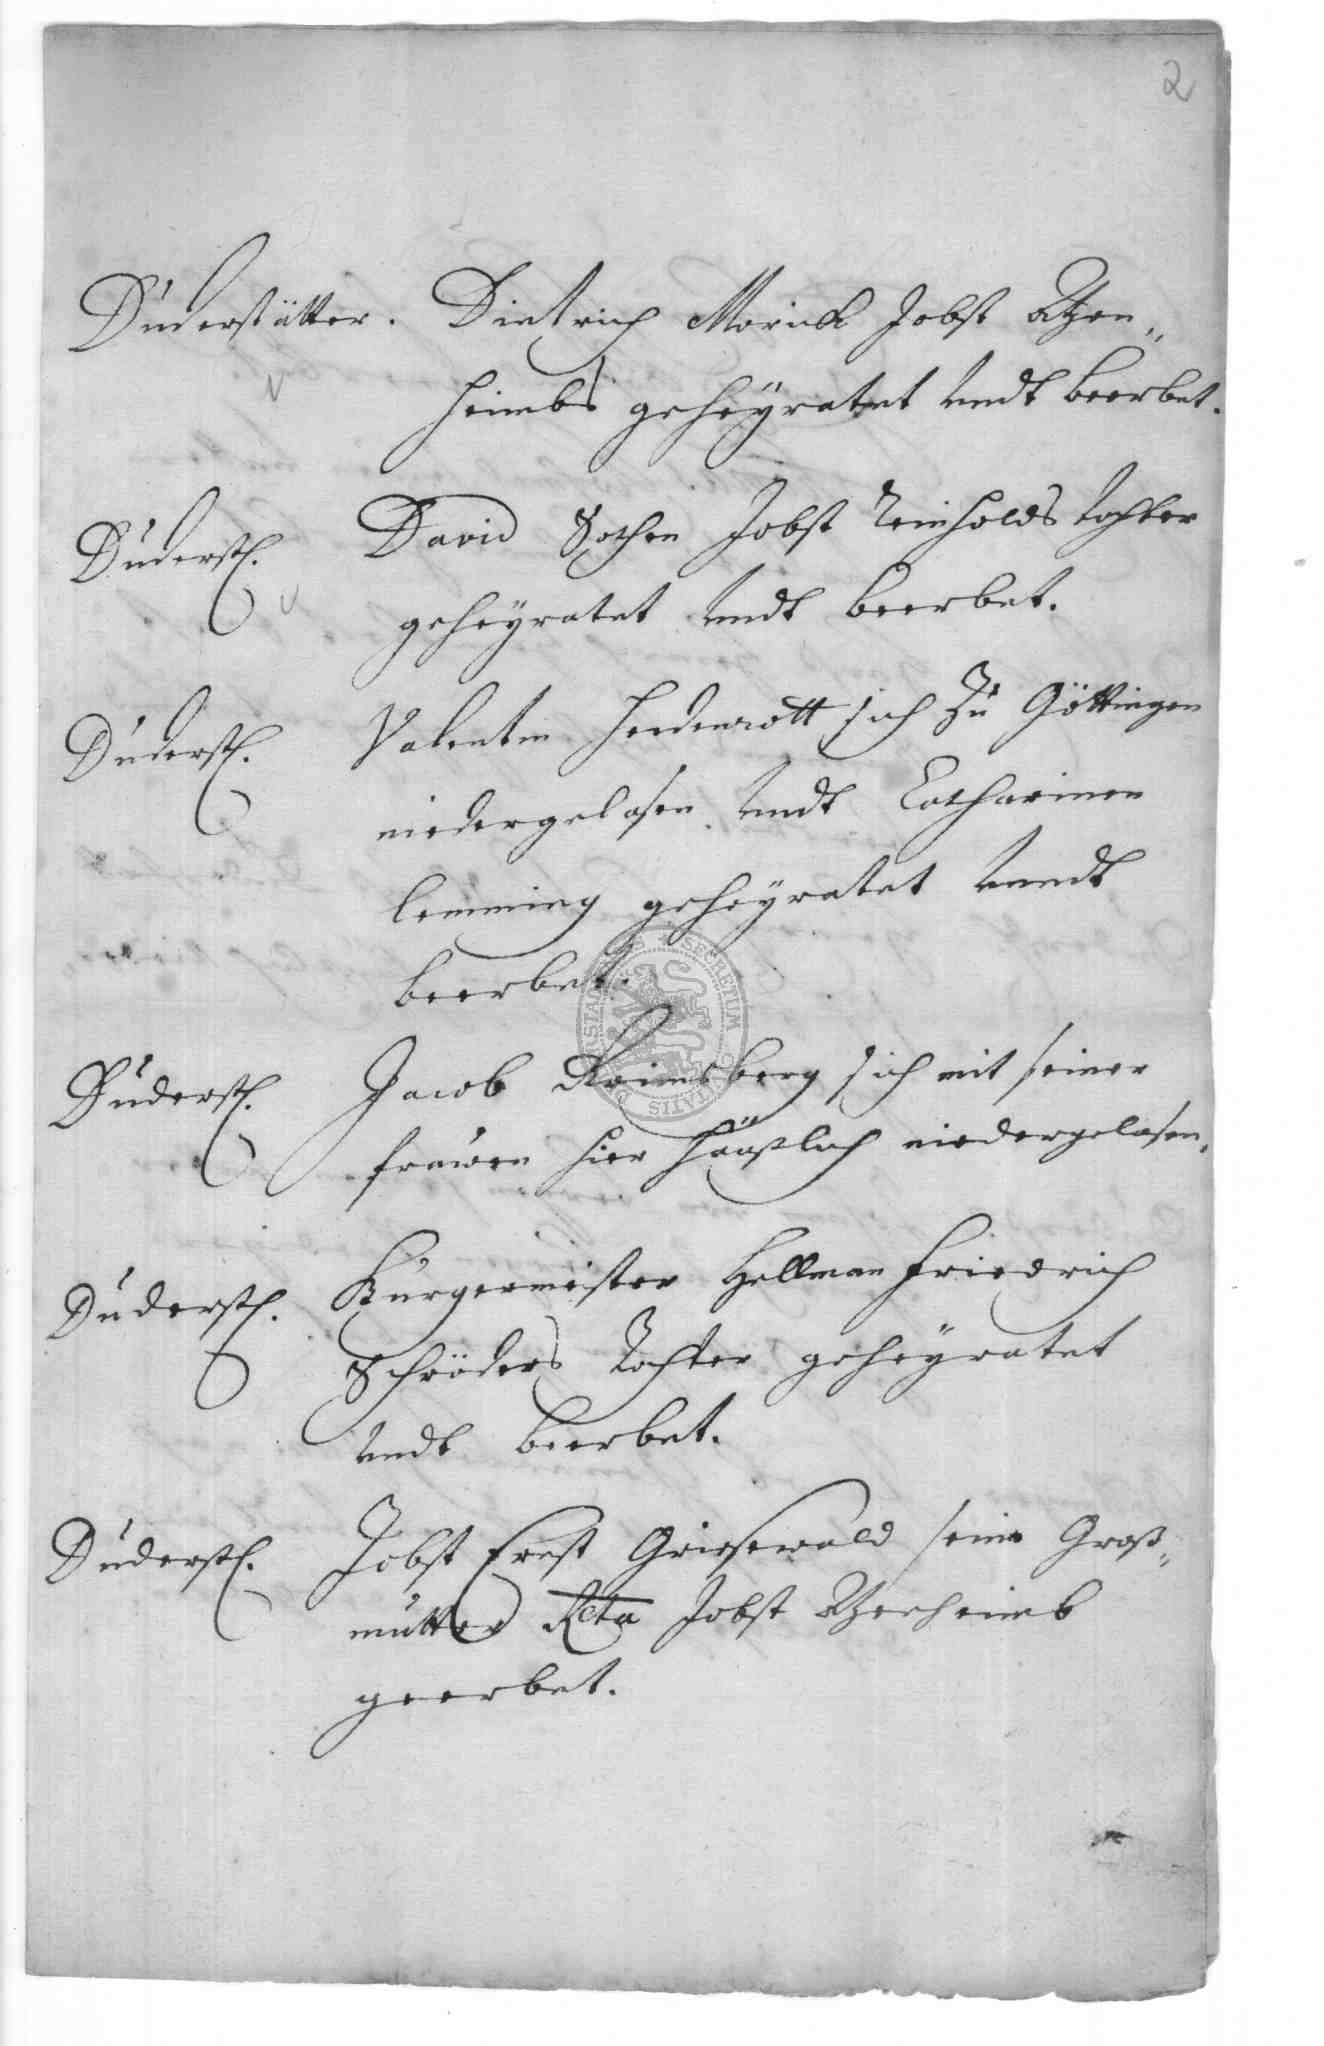 2
Duderstätter. Dietrich Morick Jobst Atzen„
heimbs geheyratet undt beerbet.
Duderst. David Sothen Jobst Reinholds tochter
geheyratet undt beerbet.
Duderst. Valentin Herdenrott sich Zu Göttingen
niedergelasen undt Catharinen
lemming geheyratet undt
beerbet.
Duderst. Jacob Reimsberg sich mit seiner
frauwen hier häußlich niedergelasen.
Duderst. Bürgermeister Hellman Friedrich
Schröders Tochter geheyratet
undt beerbet.
Duderst. Jobst Ernst Griesewald seine Groß„
mutter Jobst Atzenheimb
geerbet.
SECRETUM